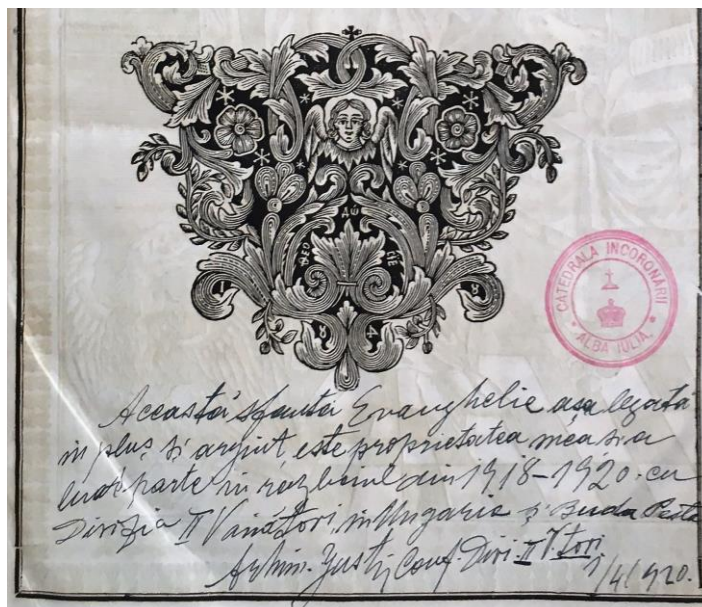 ΔѠ
ѲЕО
СІЕ
1 8
8 4
CATEDRALA INCORONĂRII
* ALBA IULIA *
Această sfântă Evanghelie așa legată
in pluș și argint este proprietatea mea si a
luat parte in războiul din 1918-1920. cu
Divizia II Vanători, in Ungaria și Buda Pesta
Arhim. Justin Conf. Divi. II V.tori.
1/4/920.